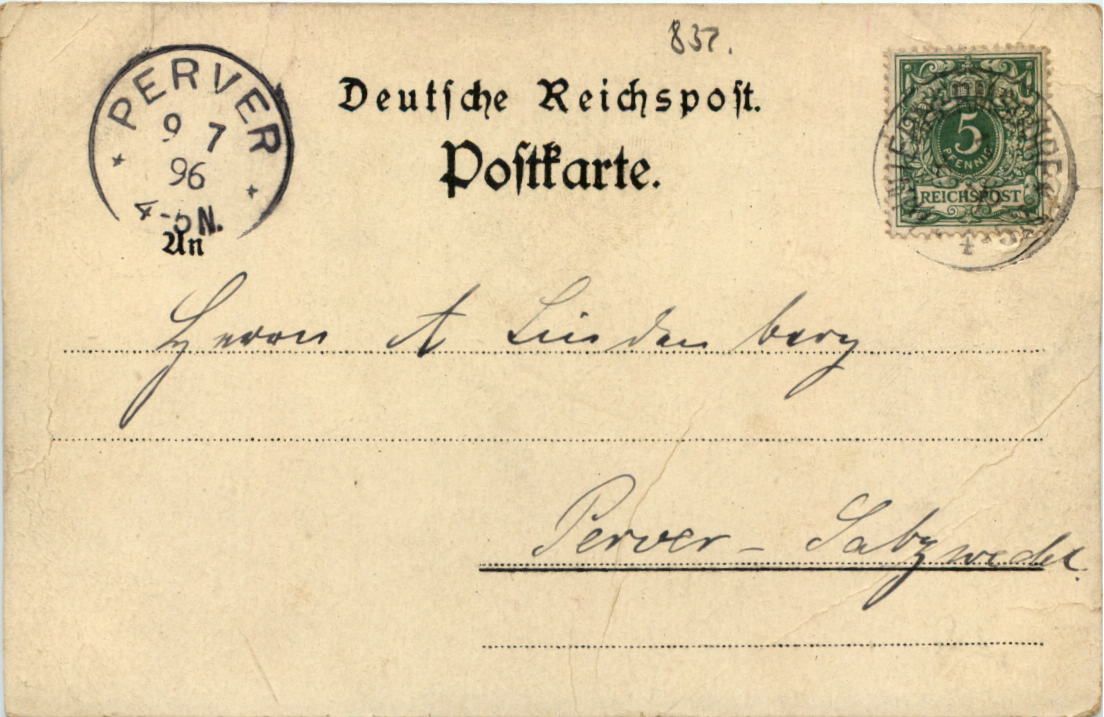 837.
Deutsche Reichspost.
Postkarte.
PERVER
9 7
96
4-5N.
5
PFENNIG
REICHSPOST
An
Herrn A Lindenberg
Perver - Salzwedel.